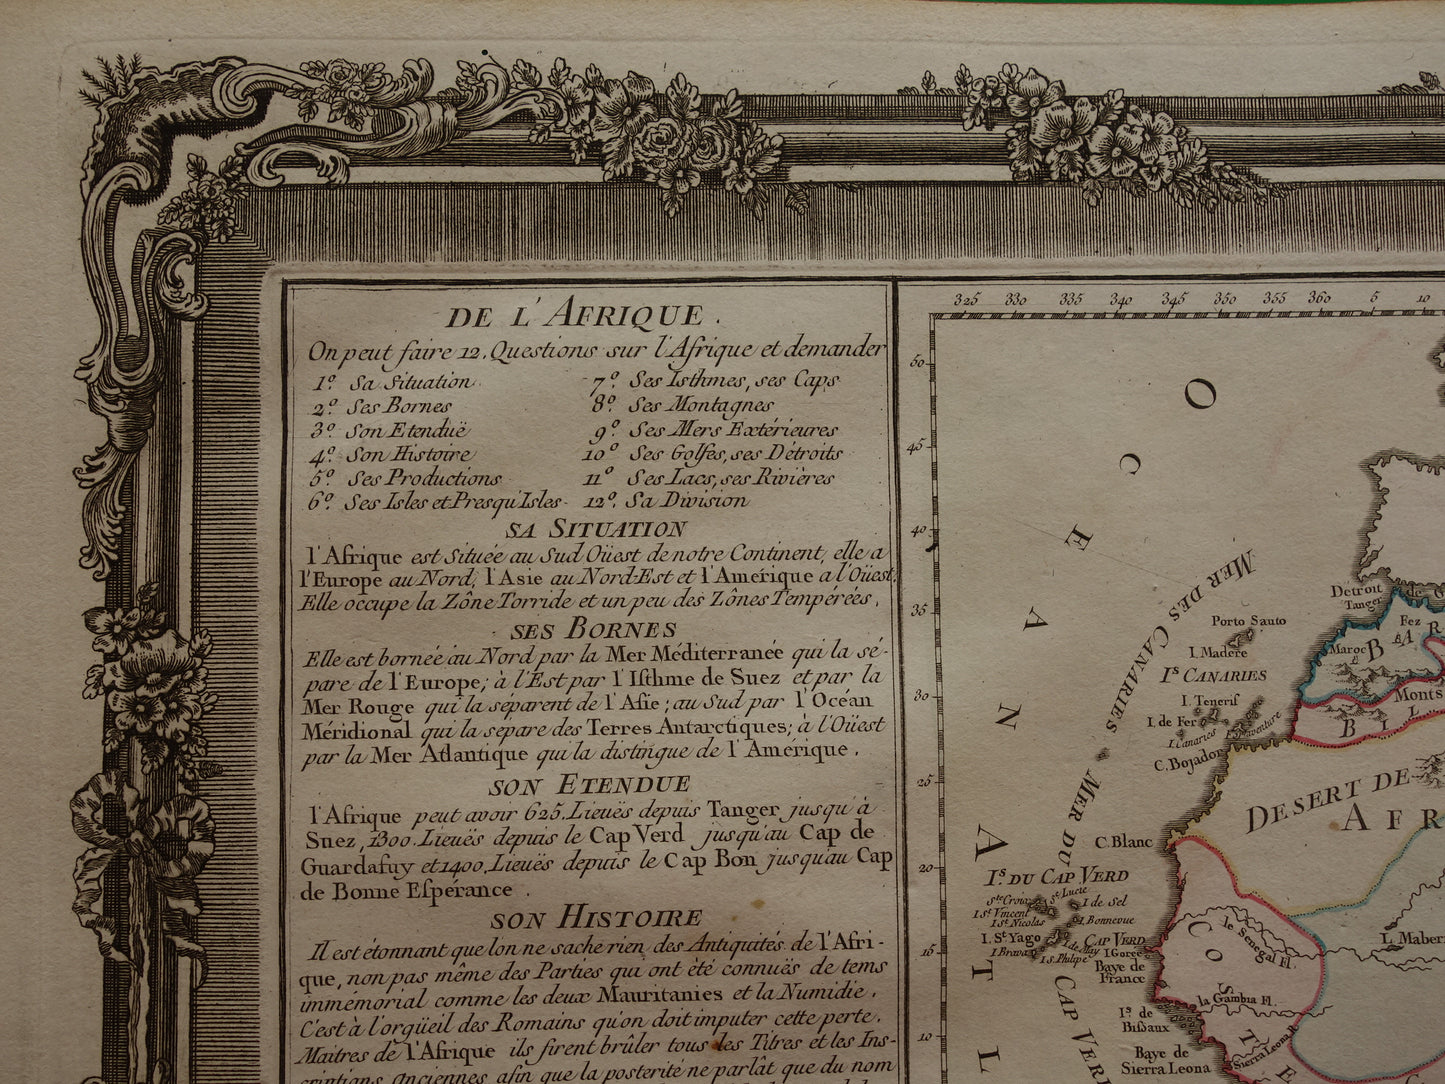 DE L'AFRIQUE.
On peut faire 12. Questions sur l'Afrique et demander
1º. Sa Situation
2º. Ses Bornes
3º. Son Etenduë
4º. Son Histoire
5º. Ses Productions
6º. Ses Isles et Presqu'Isles
7º. Ses Isthmes, ses Caps
8º. Ses Montagnes
9º. Ses Mers Extérieures
10º Ses Golfes, ses Détroits
11º Ses Lacs, ses Rivières
12º. Sa Division
SA SITUATION
l'Afrique est Située au Sud Oüest de notre Continent, elle a
l'Europe au Nord, l'Asie au Nord-Est et l'Amérique a l'Oüest.
Elle occupe la Zône Torride et un peu des Zônes Tempérées.
SES BORNES
Elle est bornée au Nord par la Mer Méditerranée qui la sé-
pare de l'Europe; à l'Est par l'Isthme de Suez et par la
Mer Rouge qui la séparent de l'Asie; au Sud par l'Océan
Méridional qui la separe des Terres Antarctiques; à l'Oüest
par la Mer Atlantique qui la distingue de l'Amérique.
SON ETENDUE
l'Afrique peut avoir 625. Lieuës depuis Tanger jusqu'à
Suez, 1300. Lieuës depuis le Cap Verd jusqu'au Cap de
Guardafuy et 1400. Lieuës depuis le Cap Bon jusqu'au Cap
de Bonne Espérance.
SON HISTOIRE
Il est étonnant que lon ne sache rien des Antiquités de l'Afri-
que, non pas même des Parties qui ont été connuës de tems
immémorial comme les deux Mauritanies et la Numidie.
C'est à l'orgüeil des Romains qu'on doit imputer cette perte.
Maitres de l'Afrique ils firent brûler tous les Titres et les Ins-
criptions anciennes afin que la posterité ne parlât que du nom
325 330 335 340 345 350 355 360 5 10
50
45
40
35
30
25
20
15
10
OCEANE
ATL
MER DES CANARIES
MER DU CAP VER
Detroit de G
Tanger
Porto Sauto
I. Madere
Is CANARIES
I. Tenerif
I. de Fer
I. Canaries
C. Bojador
Fez
Maroc
BAR
Monts
BIL
DESERT DE
AFR
C. Blanc
Is. DU CAP VERD
Ste Croix
St Lucie
I. de Sel
I St Vincent
I St Nicolas
I. Bonnevue
I. St Yago
I. de May
CAP VERD
I Goree
I. Brava
I. S. Philipe
Baye de
France
le Senegal Fl.
L. Maberi
la Gambia Fl.
Is. de
Bissaux
Baye de
Sierra Leona
Sierra Leona
COSTE